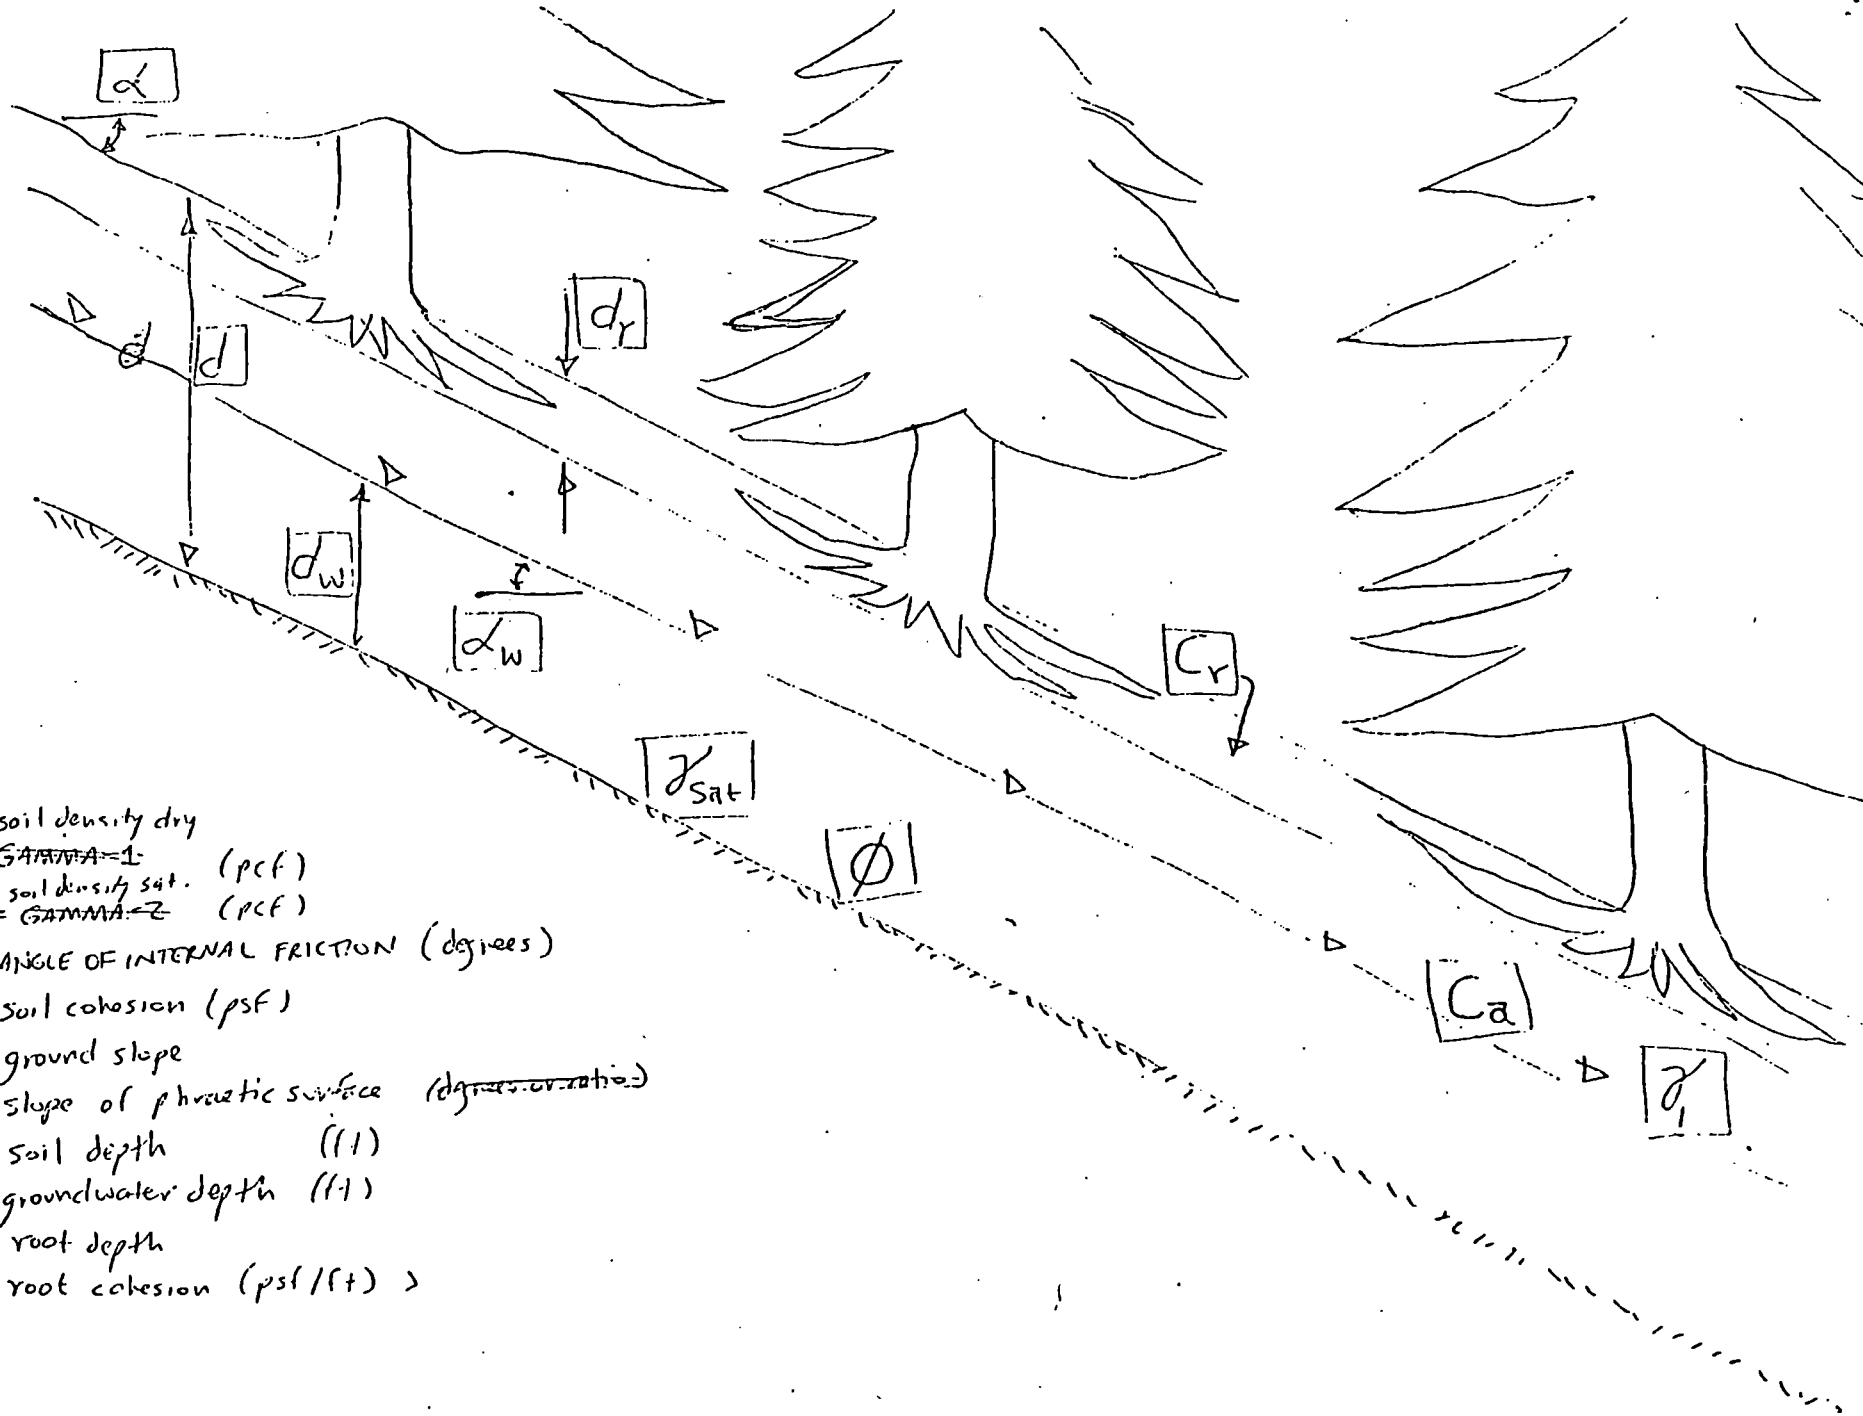 α
d_r
d
d_w
α_w
C_r
γ_sat
Ø
C_a
γ_1
soil density dry
GAMMA=1 (pcf)
soil density sat.
= GAMMA=2 (pcf)
ANGLE OF INTERNAL FRICTION (degrees)
soil cohesion (psf)
ground slope
slope of phreatic surface (degrees or ratio)
soil depth (ft)
groundwater depth (ft)
root depth
root cohesion (psf/ft)